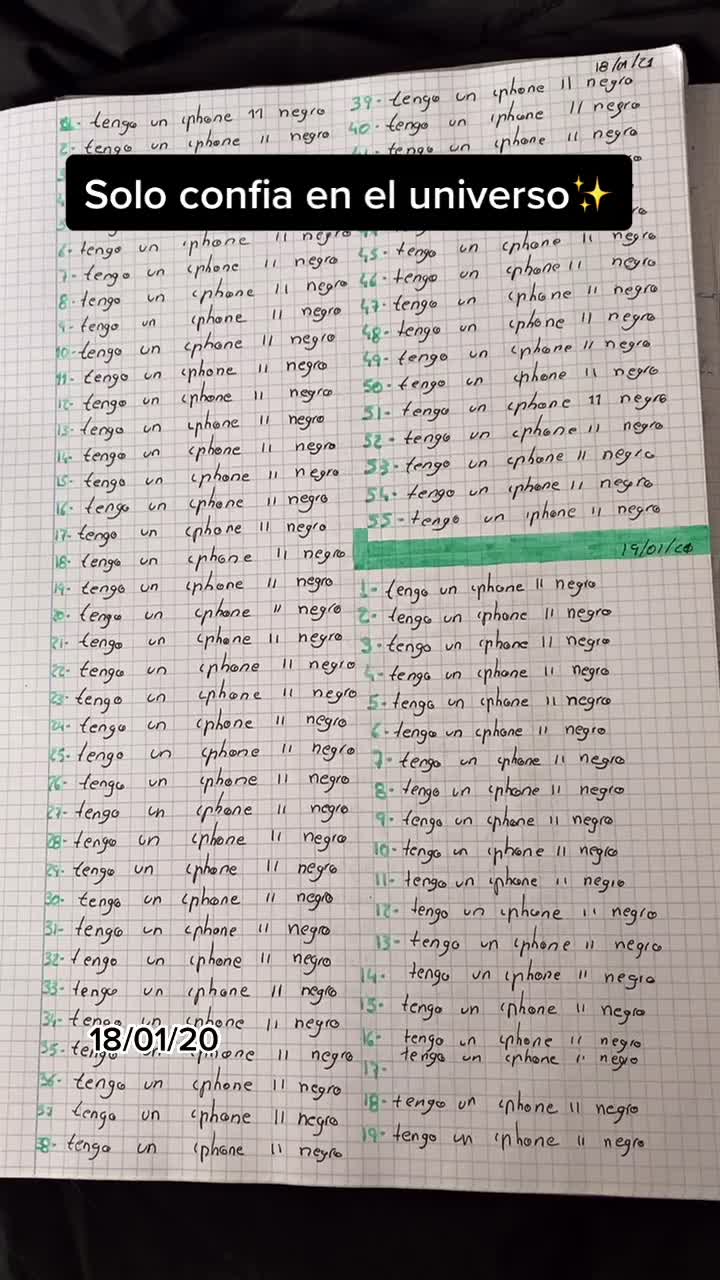 Solo confia en el universo✨
18/01/21
1- tengo un iphone 11 negro
2- tengo un iphone 11 negro
6- tengo un iphone 11 negro
7- tengo un iphone 11 negro
8- tengo un iphone 11 negro
9- tengo un iphone 11 negro
10- tengo un iphone 11 negro
11- tengo un iphone 11 negro
12- tengo un iphone 11 negro
13- tengo un iphone 11 negro
14- tengo un iphone 11 negro
15- tengo un iphone 11 negro
16- tengo un iphone 11 negro
17- tengo un iphone 11 negro
18- tengo un iphone 11 negro
19- tengo un iphone 11 negro
20- tengo un iphone 11 negro
21- tengo un iphone 11 negro
22- tengo un iphone 11 negro
23- tengo un iphone 11 negro
24- tengo un iphone 11 negro
25- tengo un iphone 11 negro
26- tengo un iphone 11 negro
27- tengo un iphone 11 negro
28- tengo un iphone 11 negro
29- tengo un iphone 11 negro
30- tengo un iphone 11 negro
31- tengo un iphone 11 negro
32- tengo un iphone 11 negro
33- tengo un iphone 11 negro
34- tengo un iphone 11 negro
18/01/20
35- tengo un iphone 11 negro
36- tengo un iphone 11 negro
37 tengo un iphone 11 negro
38- tengo un iphone 11 negro
39- tengo un iphone 11 negro
40- tengo un iphone 11 negro
41- tengo un iphone 11 negro
45- tengo un iphone 11 negro
46- tengo un iphone 11 negro
47- tengo un iphone 11 negro
48- tengo un iphone 11 negro
49- tengo un iphone 11 negro
50- tengo un iphone 11 negro
51- tengo un iphone 11 negro
52- tengo un iphone 11 negro
53- tengo un iphone 11 negro
54- tengo un iphone 11 negro
55- tengo un iphone 11 negro
19/01/20
1- tengo un iphone 11 negro
2- tengo un iphone 11 negro
3- tengo un iphone 11 negro
4- tengo un iphone 11 negro
5- tengo un iphone 11 negro
6- tengo un iphone 11 negro
7- tengo un iphone 11 negro
8- tengo un iphone 11 negro
9- tengo un iphone 11 negro
10- tengo un iphone 11 negro
11- tengo un iphone 11 negro
12- tengo un iphone 11 negro
13- tengo un iphone 11 negro
14- tengo un iphone 11 negro
15- tengo un iphone 11 negro
16- tengo un iphone 11 negro
17- tengo un iphone 11 negro
18- tengo un iphone 11 negro
19- tengo un iphone 11 negro